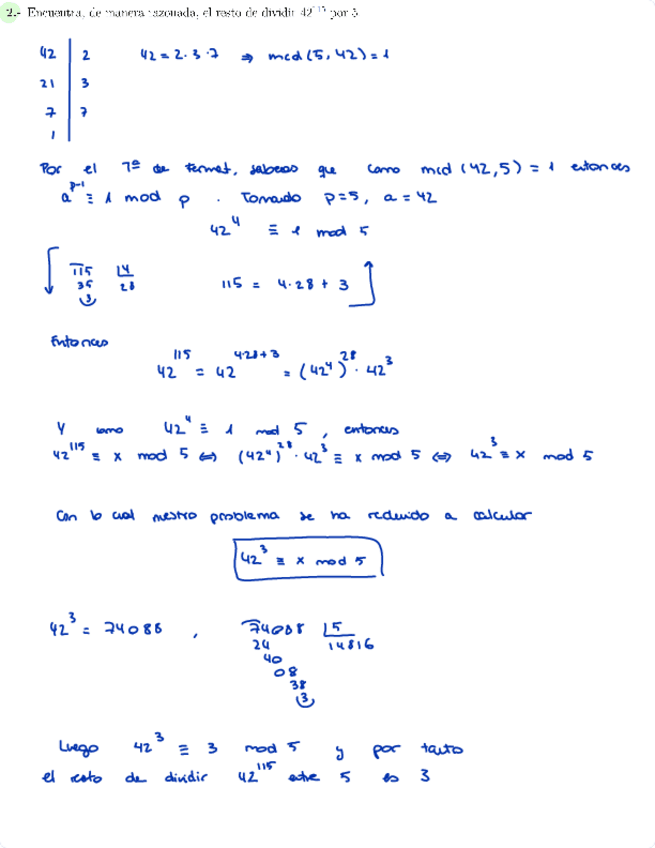 2.- Encuentra, de manera razonada, el resto de dividir 42^115 por 5
42 | 2 42 = 2·3·7 ⇒ mcd(5,42)=1
21 | 3
7 | 7
1 |
Por el Tª de Fermat, sabemos que como mcd(42,5)=1 entonces
a^p-1 ≡ 1 mod p . Tomando p=5, a=42
42^4 ≡ 1 mod 5
115 |4 115 = 4·28 + 3
35 28
3
Entonces
42^115 = 42^4·28+3 = (42^4)^28 · 42^3
Y como 42^4 ≡ 1 mod 5, entonces
42^115 ≡ x mod 5 ⇔ (42^4)^28 · 42^3 ≡ x mod 5 ⇔ 42^3 ≡ x mod 5
Con lo cual nuestro problema se ha reducido a calcular
42^3 ≡ x mod 5
42^3 = 74088 , 74088 |5
24 14816
40
08
38
3
Luego 42^3 ≡ 3 mod 5 y por tanto
el resto de dividir 42^115 entre 5 es 3